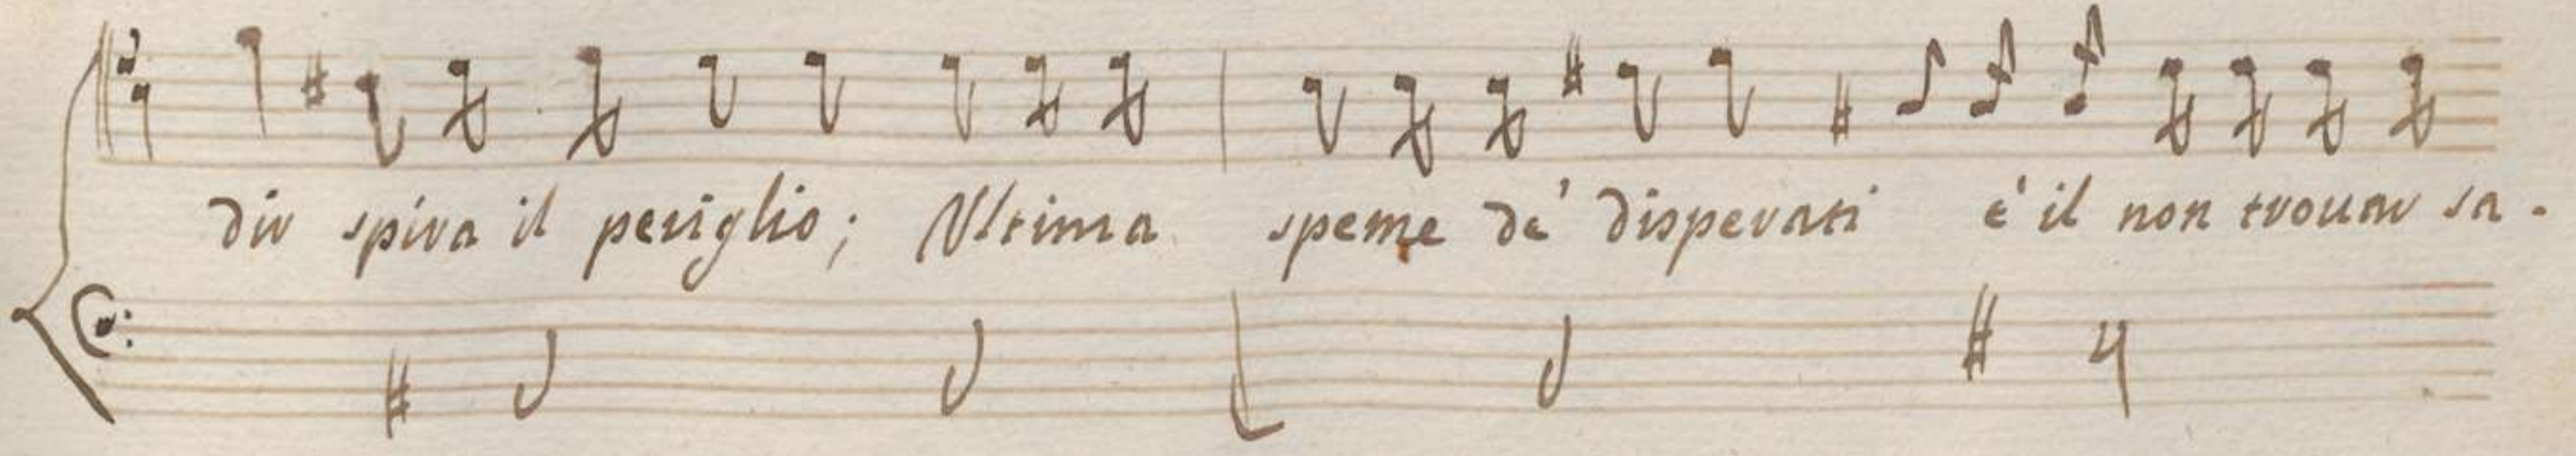 dir spira il periglio; Ultima speme de' disperati è il non trouar sa-